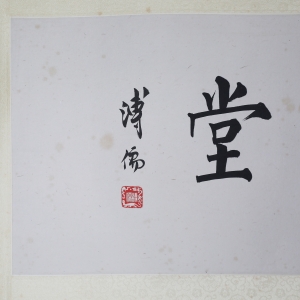 堂
溥儒